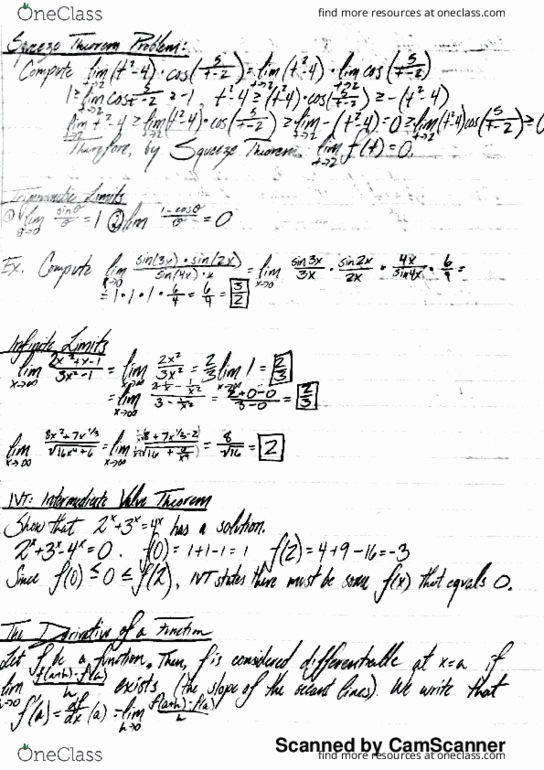 OneClass
find more resources at oneclass.com
Squeeze Theorem Problem:
Compute lim t→2 (t²-4)·cos(5/(t-2)) = lim t→2 (t²-4)·lim t→2 cos(5/(t-2))
1 ≥ lim t→2 cos 5/(t-2) ≥ -1, t²-4 ≥ (t²-4)·cos(5/(t-2)) ≥ -(t²-4)
lim t→2 t²-4 ≥ lim t→2 (t²-4)·cos(5/(t-2)) ≥ lim t→2 -(t²-4) = 0 ≥ lim t→2 (t²-4)cos(5/(t-2)) ≥ 0
Therefore, by Squeeze Theorem, lim t→2 f(t)=0.
Trigonometric Limits
① lim θ→0 sinθ/θ = 1 ② lim (1-cosθ)/θ = 0
Ex. Compute lim x→0 (sin(3x)·sin(2x))/(sin(4x)·x) = lim x→0 sin3x/3x · sin2x/2x · 4x/sin4x · 6/4 =
= 1·1·1·6/4 = 6/4 = 3/2
Infinite Limits
lim x→∞ (2x²+x-1)/(3x²-1) = lim x→∞ 2x²/3x² = 2/3 lim x→∞ 1 = 2/3
= lim x→∞ (2+1/x-1/x²)/(3-1/x²) = (2+0-0)/(3-0) = 2/3
lim x→∞ (8x²+7x^1/3)/√(16x⁴+6) = lim x→∞ (8+7x^1/3-2)/√(16+6/x⁴) = 8/√16 = 2
IVT: Intermediate Value Theorem
Show that 2ˣ+3ˣ=4ˣ has a solution.
2ˣ+3ˣ-4ˣ=0. f(0)=1+1-1=1 f(2)=4+9-16=-3
Since f(0) ≤ 0 ≤ f(2), IVT states there must be some f(x) that equals 0.
The Derivative of a Function
Let f be a function. Then, f is considered differentiable at x=a if
lim h→0 (f(a+h)-f(a))/h exists (the slope of the secant lines). We write that
f'(a) = df/dx (a) = lim h→0 (f(a+h)-f(a))/h
Scanned by CamScanner
OneClass
find more resources at oneclass.com